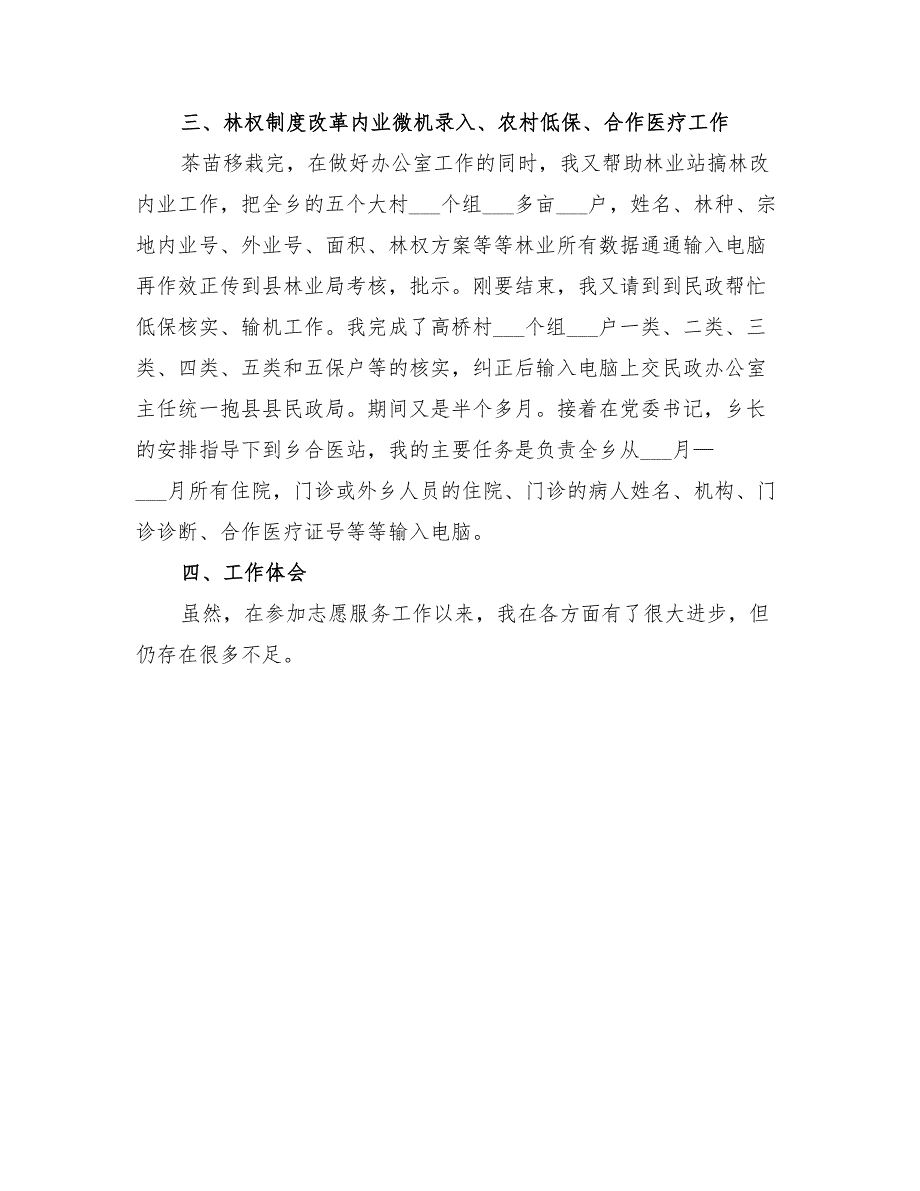 三、林权制度改革内业微机录入、农村低保、合作医疗工作
茶苗移栽完，在做好办公室工作的同时，我又帮助林业站搞林改
内业工作，把全乡的五个大村___个组___多亩___户，姓名、林种、宗
地内业号、外业号、面积、林权方案等等林业所有数据通通输入电脑
再作效正传到县林业局考核，批示。刚要结束，我又请到到民政帮忙
低保核实、输机工作。我完成了高桥村___个组___户一类、二类、三
类、四类、五类和五保户等的核实，纠正后输入电脑上交民政办公室
主任统一抱县县民政局。期间又是半个多月。接着在党委书记，乡长
的安排指导下到乡合医站，我的主要任务是负责全乡从___月—
___月所有住院，门诊或外乡人员的住院、门诊的病人姓名、机构、门
诊诊断、合作医疗证号等等输入电脑。
四、工作体会
虽然，在参加志愿服务工作以来，我在各方面有了很大进步，但
仍存在很多不足。